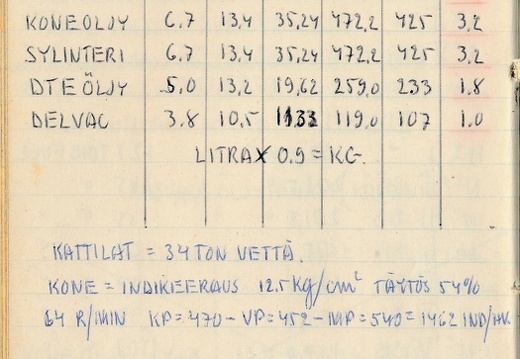 KONEÖLJY 6.7 13,4 35,24 472,2 425 3,2
SYLINTERI 6.7 13.4 35,24 472,2 425 3.2
DTE ÖLJY 5.0 13,2 19,62 259,0 233 1.8
DELVAC 3.8 10,5 11.33 119,0 107 1.0
LITRA X 0.9 = KG.
KATTILAT = 34 TON VETTÄ.
KONE = INDIKEERAUS 12.5 kg/cm² TÄYTÖS 54%
64 R/MIN KP=470 - VP=452 - MP=540 = 1462 IND/HV.